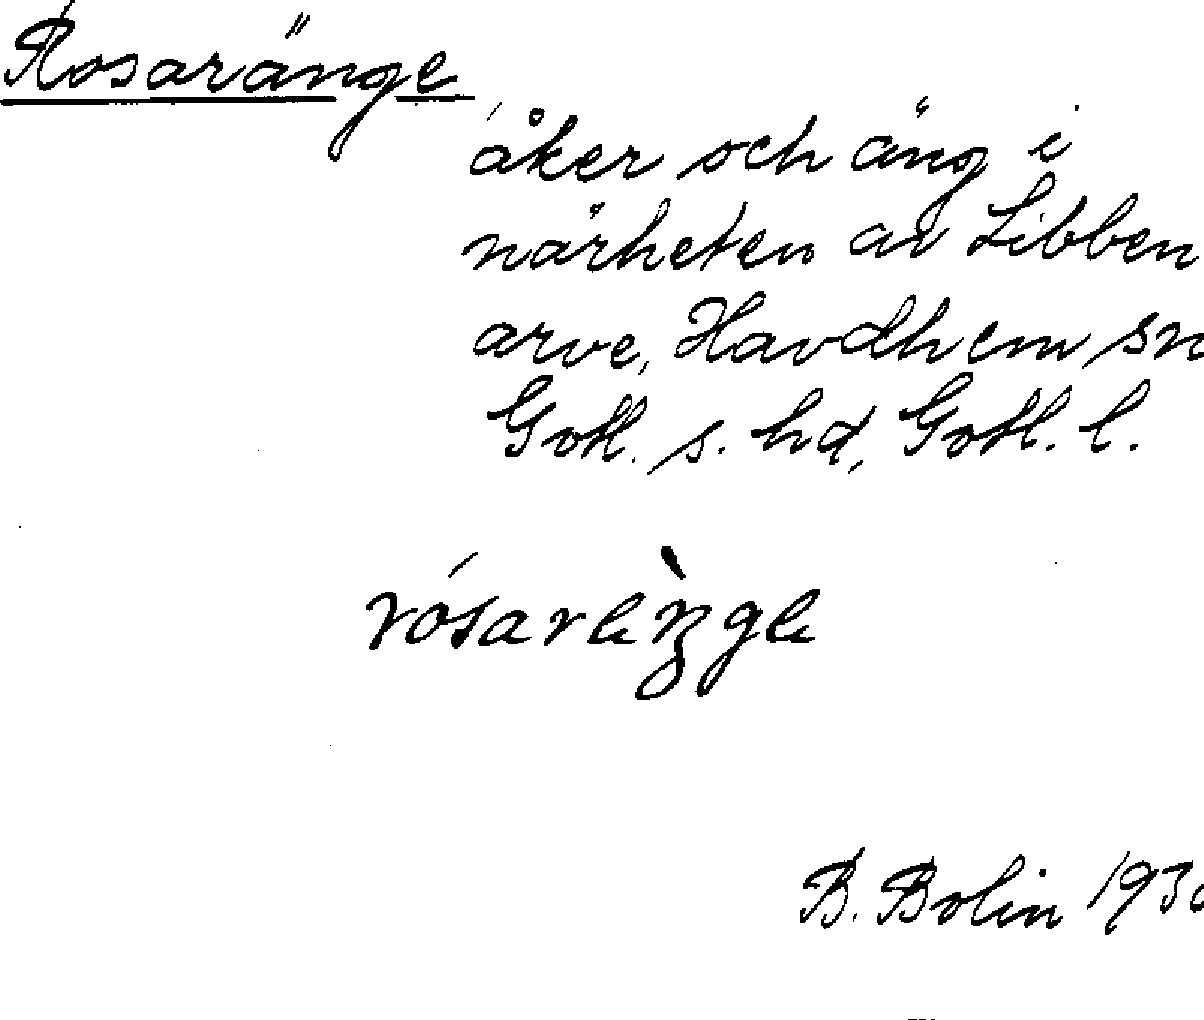 Rosaränge
åker och äng i
närheten av Libben
arve, Havdhem sn
Gotl. s. hd, Gotl. l.
rósarèŋge
B. Bolin 193